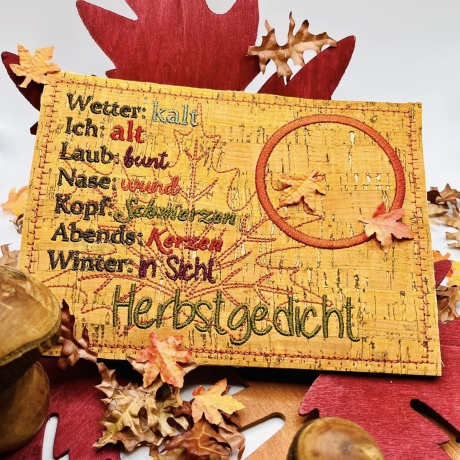 Wetter: kalt
Ich: alt
Laub: bunt
Nase: wund
Kopf: Schmerzen
Abends: Kerzen
Winter: in Sicht
Herbstgedicht